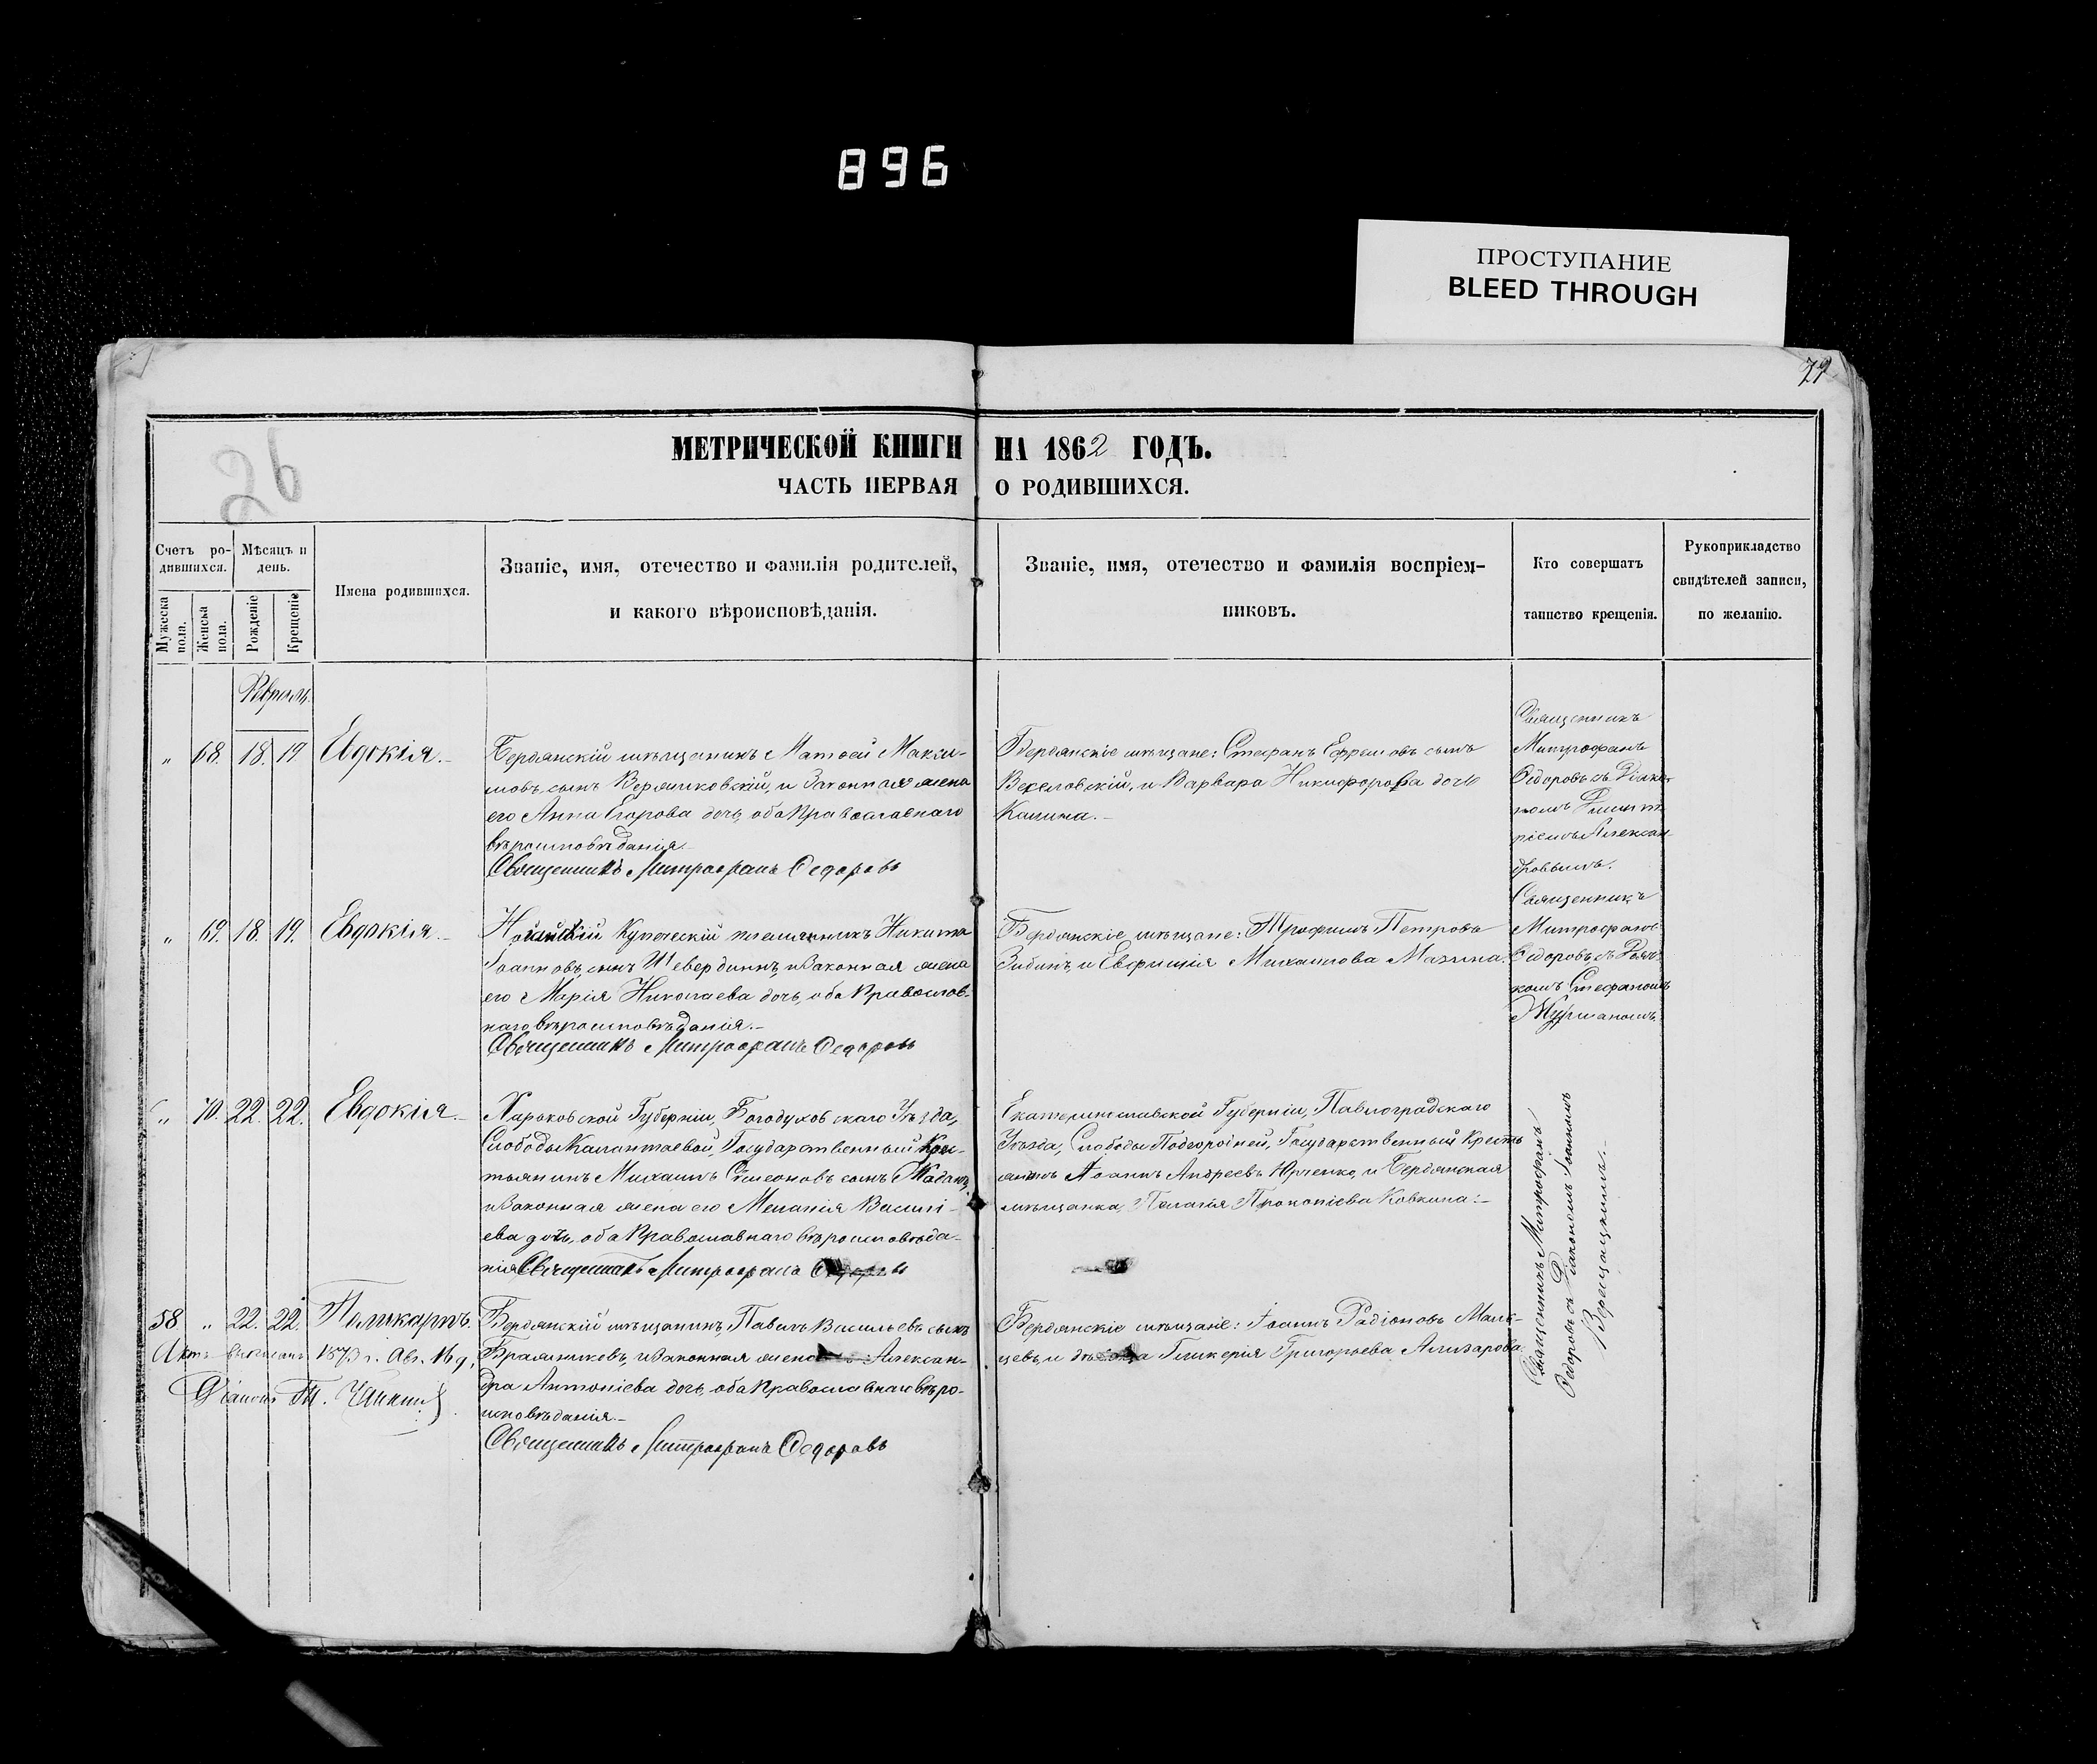 896
ПРОСТУПАНИЕ
BLEED THROUGH
79
26
МЕТРИЧЕСКОЙ КНИГИ НА 1862 ГОДЪ.
ЧАСТЬ ПЕРВАЯ О РОДИВШИХСЯ.
Счетъ ро-
дившихся.
Мужеска пола.
Женска пола.
Мѣсяцъ и
день.
Рожденіе
Крещеніе
Имена родившихся.
Званіе, имя, отечество и фамилія родителей,
и какого вѣроисповѣданія.
Званіе, имя, отечество и фамилія воспріем-
никовъ.
Кто совершатъ
таинство крещенія.
Рукоприкладство
свидѣтелей записи,
по желанію.
Февраль
„ 68. 18. 19. Евдокія.
Бердянскій мѣщанинъ Матѳей Макси-
мовъ сынъ и Законная жена
его Анна Егорова дочь, оба Православнаго
вѣроисповѣданія.
Священникъ Митрофанъ Федоровъ
Бердянскіе мѣщане: Стефанъ Ефремовъ сынъ
Веселовскій, и Варвара Никифорова дочь
Калина.
Священникъ
Митрофанъ
Ѳедоровъ съ Діако-
номъ Димит-
ріемъ Алексан-
дровымъ.
„ 69. 18. 19. Евдокія.
Купеческій племянникъ Никита
Іоанновъ сынъ Шевердинъ, и Законная жена
его Марія Николаева дочь, оба Православ-
наго вѣроисповѣданія.
Священникъ Митрофанъ Федоровъ
Бердянскіе мѣщане: Трофимъ Петровъ
Зибинъ, и Евфимія Михаилова Мазина.
Священникъ
Митрофанъ
Ѳедоровъ, съ Дьяч-
комъ Стефаномъ
„ 70. 22. 22. Евдокія.
Харьковской Губерніи, Богодуховскаго Уѣзда,
Слободы Калантаевой, Государственный Крес-
тьянинъ Михаилъ Симеоновъ сынъ
и Законная жена его Меланія Василі-
ева дочь, оба Православнаго вѣроисповѣда-
нія Священникъ Митрофанъ Федоровъ
Екатеринославской Губерніи, Павлоградскаго
Уѣзда, Слободы Подгородней, Государственный Кресть
янинъ Іоаннъ Андреевъ Юрченко, и Бердянская
мѣщанка, Пелагія Прокопіева Ковкина:
Священникъ Митрофанъ
Ѳедоровъ съ Діакономъ Іоанномъ
Верещацкимъ.
58 „ 22. 22. Поликарпъ.
Бердянскій мѣщанинъ, Павелъ Васильевъ сынъ
Бражниковъ, и Законная жена Алексан-
дра Антоніева дочь, оба Православнаго вѣро-
исповѣданія.
Священникъ Митрофанъ Федоровъ
Бердянскіе мѣщане: Іоаннъ Радіоновъ Маль-
цевъ, и дѣвица Гликерія Григорьева Ализарова
Актъ 1873 г. Авг. 16 д.